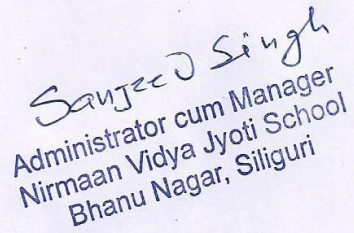 Sanjeev Singh
Administrator cum Manager
Nirmaan Vidya Jyoti School
Bhanu Nagar, Siliguri